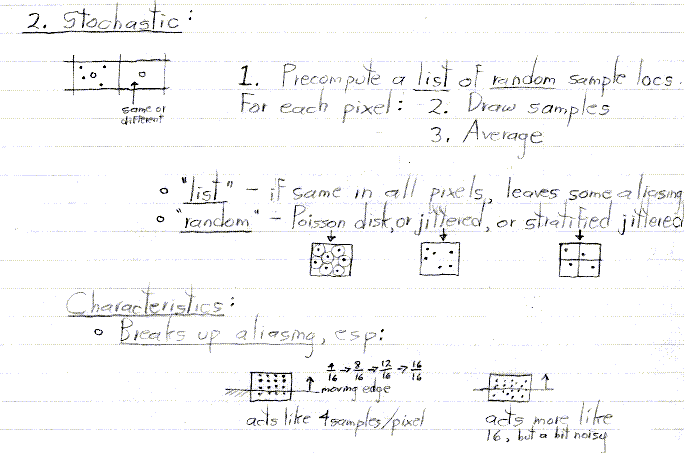 2. Stochastic:
same or
different
1. Precompute a list of random sample locs.
For each pixel: 2. Draw samples
3. Average
"list" - if same in all pixels, leaves some aliasing
"random" - Poisson disk, or jittered, or stratified jittered
Characteristics:
Breaks up aliasing, esp:
4/16 → 8/16 → 12/16 → 16/16
moving edge
acts like 4 samples/pixel
acts more like
16, but a bit noisy